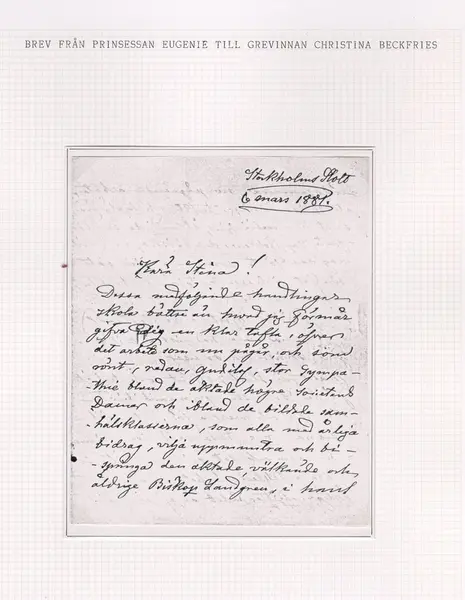 BREV FRÅN PRINSESSAN EUGENIE TILL GREVINNAN CHRISTINA BECKFRIES
Stockholms Slott
6 mars 1881.
Kära Stina!
Dessa medföljande handlingar
skola bättre än hvad jag förmår
gifva dig en klar öfver
det arbete som nu pågår, och som
rönt, redan, gudilof, stor Sympa-
thie bland de aktade högre Societens
Damer och ibland de bildade sam-
hälsklasserna, som alla med årliga
bidrag, vilja uppmuntra och bi-
-springa den aktade, välkände och
åldrige Biskop Landgren, i hans